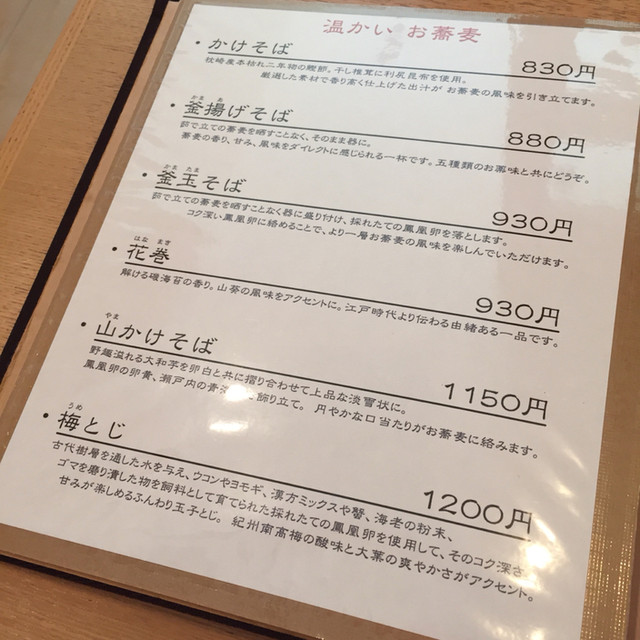 温かい お蕎麦
・かけそば 830円
枕崎産本枯れ二年物の鰹節。干し椎茸に利尻昆布を使用。
厳選した素材で香り高く仕上げた出汁が お蕎麦の風味を引き立てます。
かま あ
・釜揚げそば 880円
茹で立ての蕎麦を晒すことなく、そのまま器に。
蕎麦の香り、甘み、風味をダイレクトに感じられる一杯です。五種類のお薬味と共にどうぞ。
かま たま
・釜玉そば 930円
茹で立ての蕎麦を晒すことなく器に盛り付け、採れたての鳳凰卵を落とします。
コク深い鳳凰卵に絡めることで、より一層お蕎麦の風味を楽しんでいただけます。
はな まき
・花巻 930円
解ける磯海苔の香り。山葵の風味をアクセントに。江戸時代より伝わる由緒ある一品です。
やま
・山かけそば 1150円
野趣溢れる大和芋を卵白と共に摺り合わせて上品な淡雪状に。
鳳凰卵の卵黄、瀬戸内の青 飾り立て。 円やかな口当たりがお蕎麦に絡みます。
うめ
・梅とじ 1200円
古代樹層を通した水を与え、ウコンやヨモギ、漢方ミックスや蟹、海老の粉末、
ゴマを磨り潰した物を飼料として育てられた採れたての鳳凰卵を使用して、そのコク深さ
甘みが楽しめるふんわり玉子とじ。 紀州南高梅の酸味と大葉の爽やかさがアクセント。